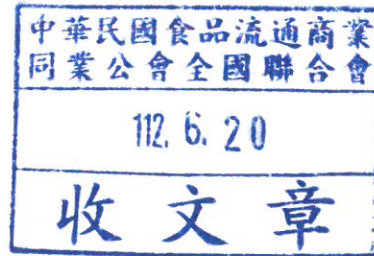 中華民國食品流通商業
同業公會全國聯合會
112. 6. 20
收文章